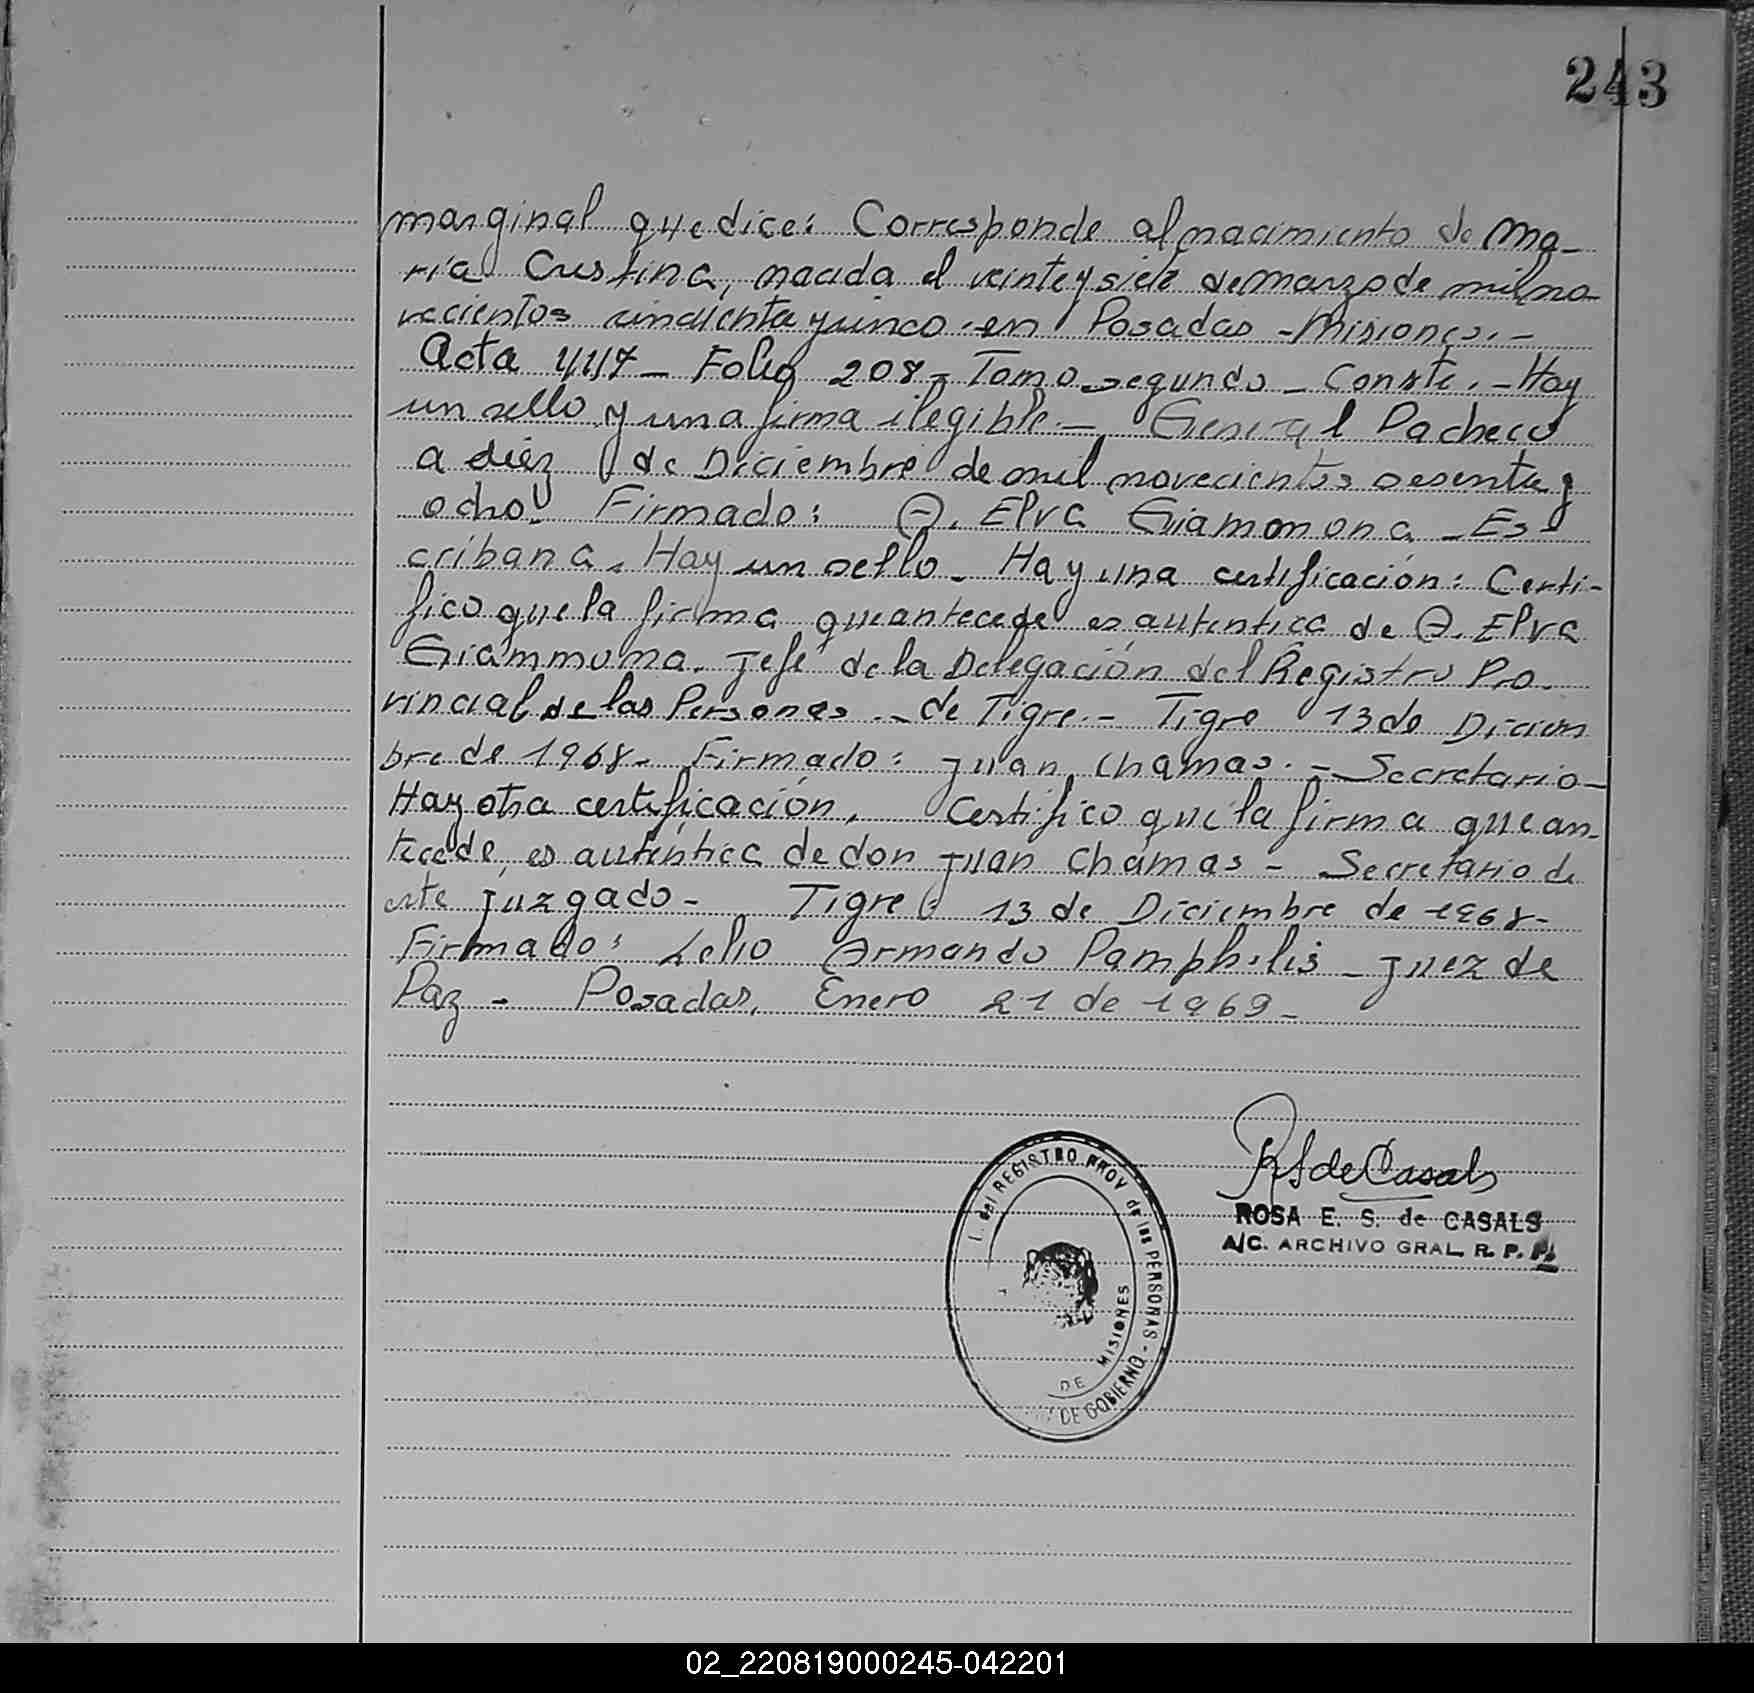 243
marginal que dice: Corresponde al nacimiento de Ma-
ría Cristina, nacida el veinte y siete de marzo de mil no
vecientos cincuenta y cinco en Posadas - Misiones. -
Acta 447 - Folio 208 - Tomo segundo - Conste. - Hay
un sello y una firma ilegible. - General Pacheco
a diéz de Diciembre de mil novecientos sesenta y
ocho. Firmado: A. Elva Giamonona - Es
cribana. Hay un sello. Hay una certificación: Certi-
fico que la firma que antecede es autentica de A. Elva
Giammona. Jefe de la Delegación del Registro Pro-
vincial de las Personas - de Tigre. - Tigre 13 de Diciem
bre de 1968 - Firmado: Juan Chamas. - Secretario -
Hay otra certificación. Certifico que la firma que an-
tecede, es autentica de don Juan Chamas - Secretario de
este Juzgado - Tigre: 13 de Diciembre de 1968 -
Firmado: Lelio Armando Pamphilis - Juez de
Paz - Posadas, Enero 21 de 1969 -
R S de Casals
ROSA E. S. de CASALS
A/C. ARCHIVO GRAL. R. P. P.
del REGISTRO PROV de las PERSONAS - DE GOBIERNO
DE MISIONES
02_220819000245-042201